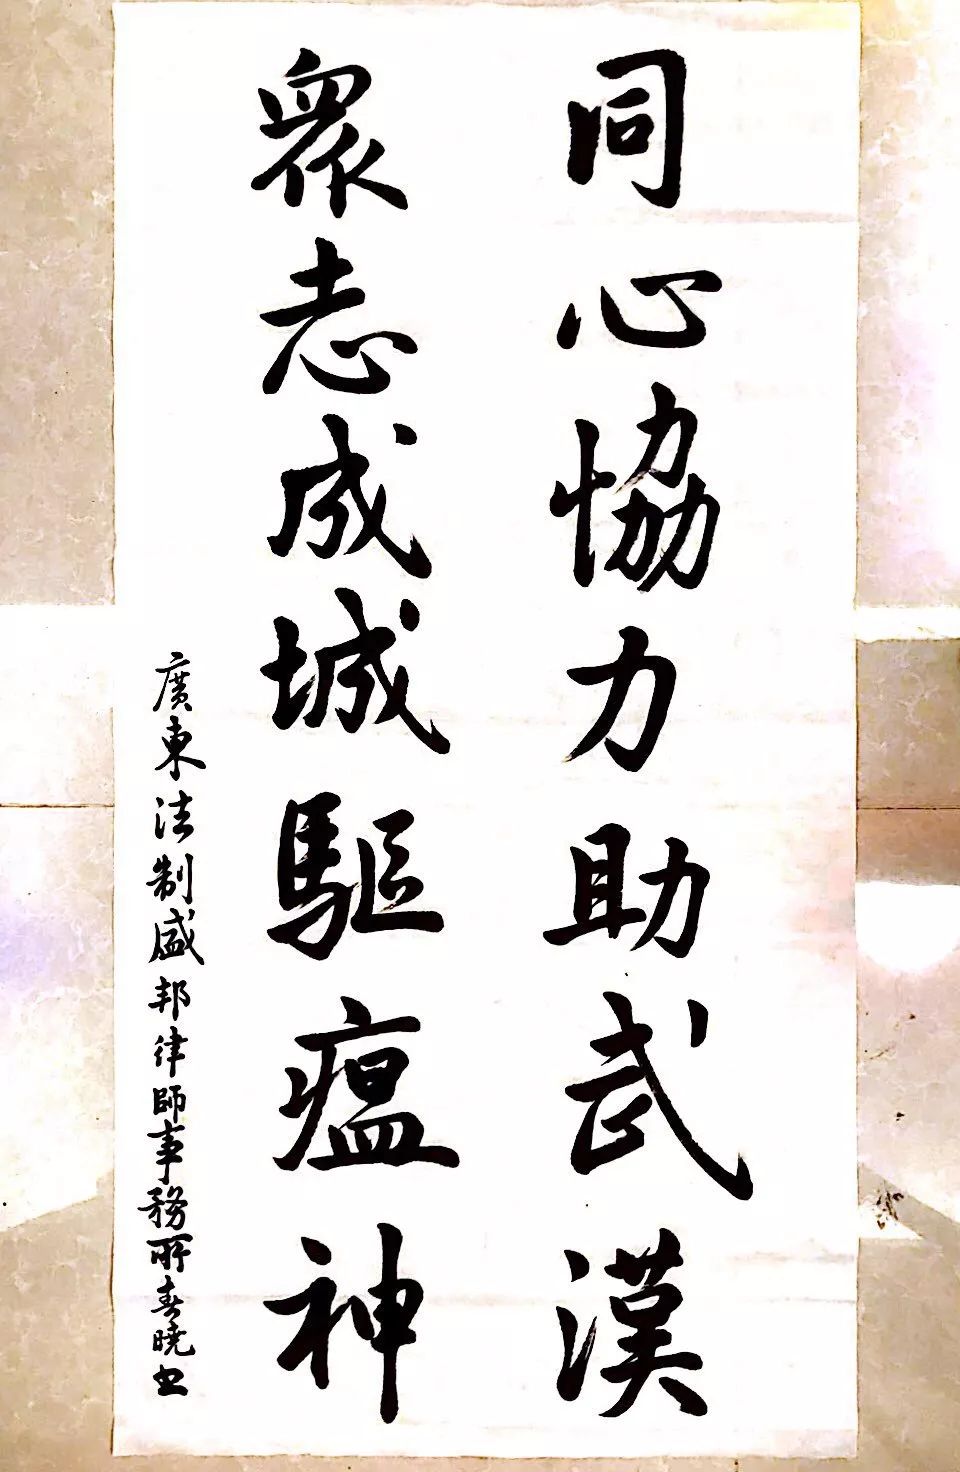 同心協力助武漢
眾志成城驅瘟神
廣東法制盛邦律師事務所春曉书